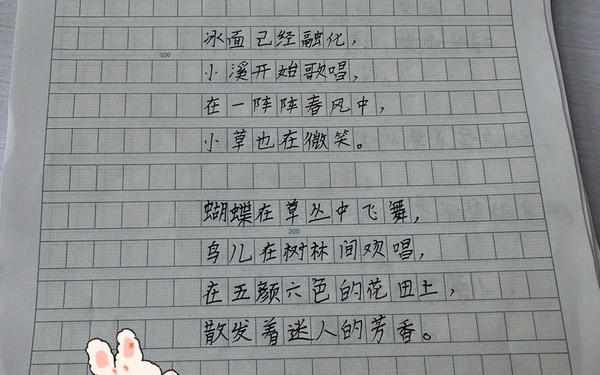 冰面已经融化，
100
小溪开始歌唱，
在一阵阵春风中，
小草也在微笑。
蝴蝶在草丛中飞舞，
200
鸟儿在树林间欢唱，
在五颜六色的花田土，
散发着迷人的芳香。